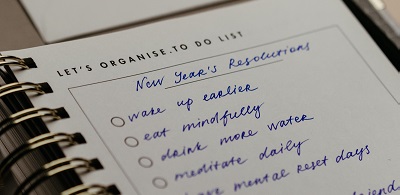 LET'S ORGANISE.TO DO LIST
New Year's Resolutions
wake up earlier
eat mindfully
drink more water
meditate daily
have mental reset days
friend